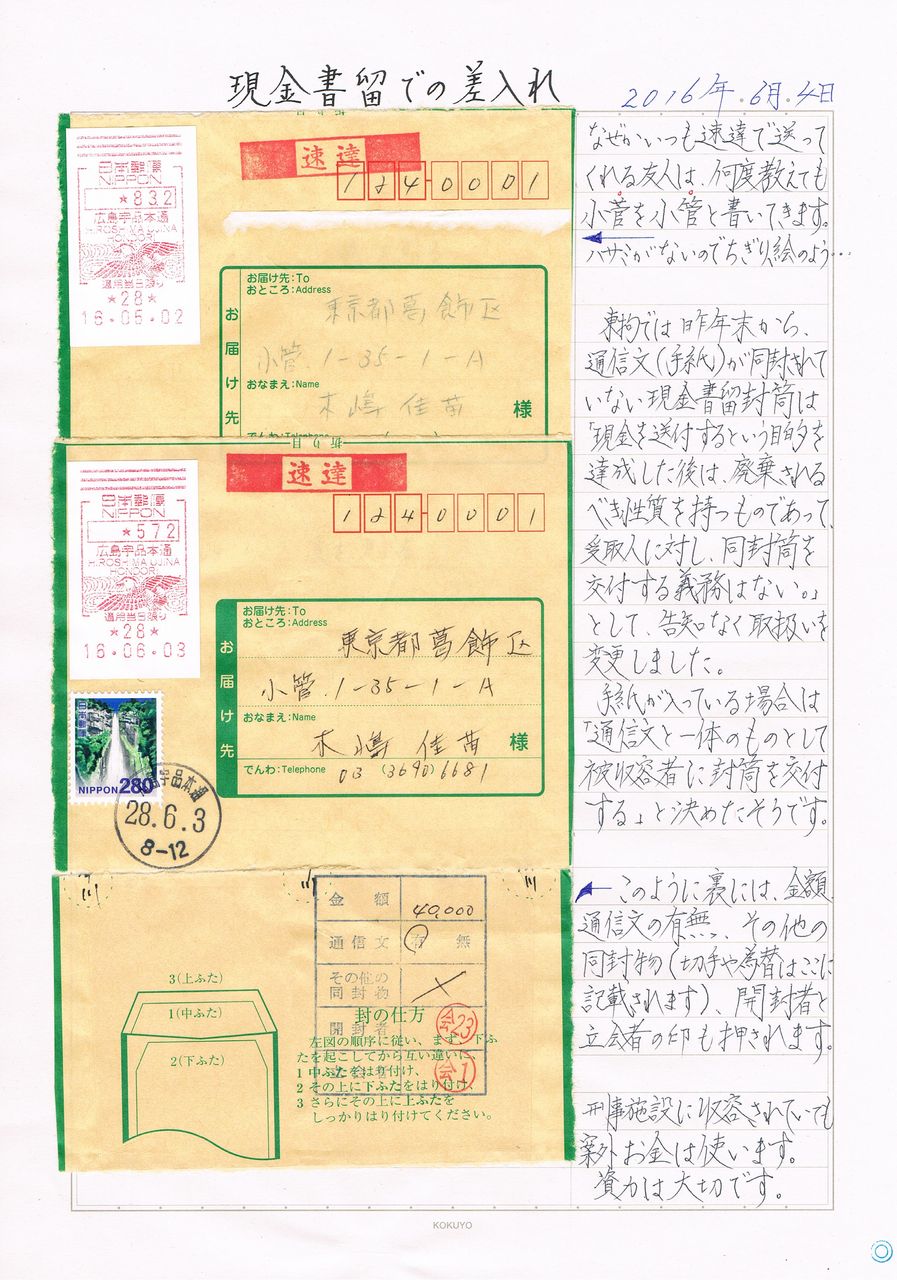 現金書留での差入れ
2016年.6月.4日
日本郵便
NIPPON
*832
広島宇品本通
HIROSHIMA UJINA
HONDORI
適用当日限り
*28*
16.05.02
速達
124-0001
お届け先
お届け先:To
おところ:Address
東京都葛飾区
小管.1-35-1-A
おなまえ:Name
木嶋佳苗
様
でんわ:Telephone
折り目
日本郵便
NIPPON
*572
広島宇品本通
HIROSHIMA UJINA
HONDORI
適用当日限り
*28*
16.06.03
速達
124-0001
お届け先
お届け先:To
おところ:Address
東京都葛飾区
小管.1-35-1-A
おなまえ:Name
木嶋佳苗
様
でんわ:Telephone
03(3690)6681
NIPPON 280
宇品本通
28.6.3
8-12
金額 40,000
通信文 有 無
その他の
同封物
開封者 会23
会1
3(上ふた)
1(中ふた)
2(下ふた)
封の仕方
左図の順序に従い、まず、下ふ
たを起こしてから互い違いに、
1 中ふたをはり付け、
2 その上に下ふたをはり付け、
3 さらにその上に上ふたを
しっかりはり付けてください。
なぜかいつも速達で送って
くれる友人は、何度教えても
小菅を小管と書いてきます。
ハサミがないのでちぎり絵のよう…
東拘では昨年末から、
通信文(手紙)が同封されて
いない現金書留封筒は
「現金を送付するという目的を
達成した後は、廃棄される
べき性質を持つものであって、
受取人に対し、同封筒を
交付する義務はない。」
として、告知なく取扱いを
変更しました。
手紙が入っている場合は
「通信文と一体のものとして
被収容者に封筒を交付
する」と決めたそうです。
このように裏には、金額
通信文の有無、その他の
同封物(切手や為替はここに
記載されます)、開封者と
立会者の印も押されます。
刑事施設に収容されていても
案外お金は使います。
資力は大切です。
KOKUYO